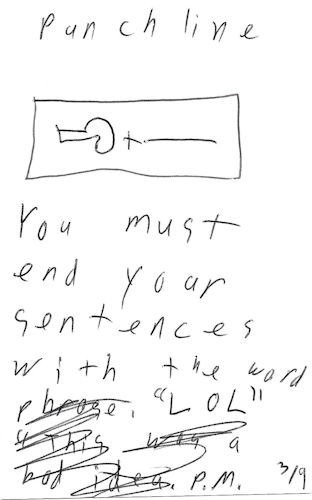 Punch line
You must
end your
sentences
with the word
phrase. "LOL"
this was a
bad idea. P.M. 3/9